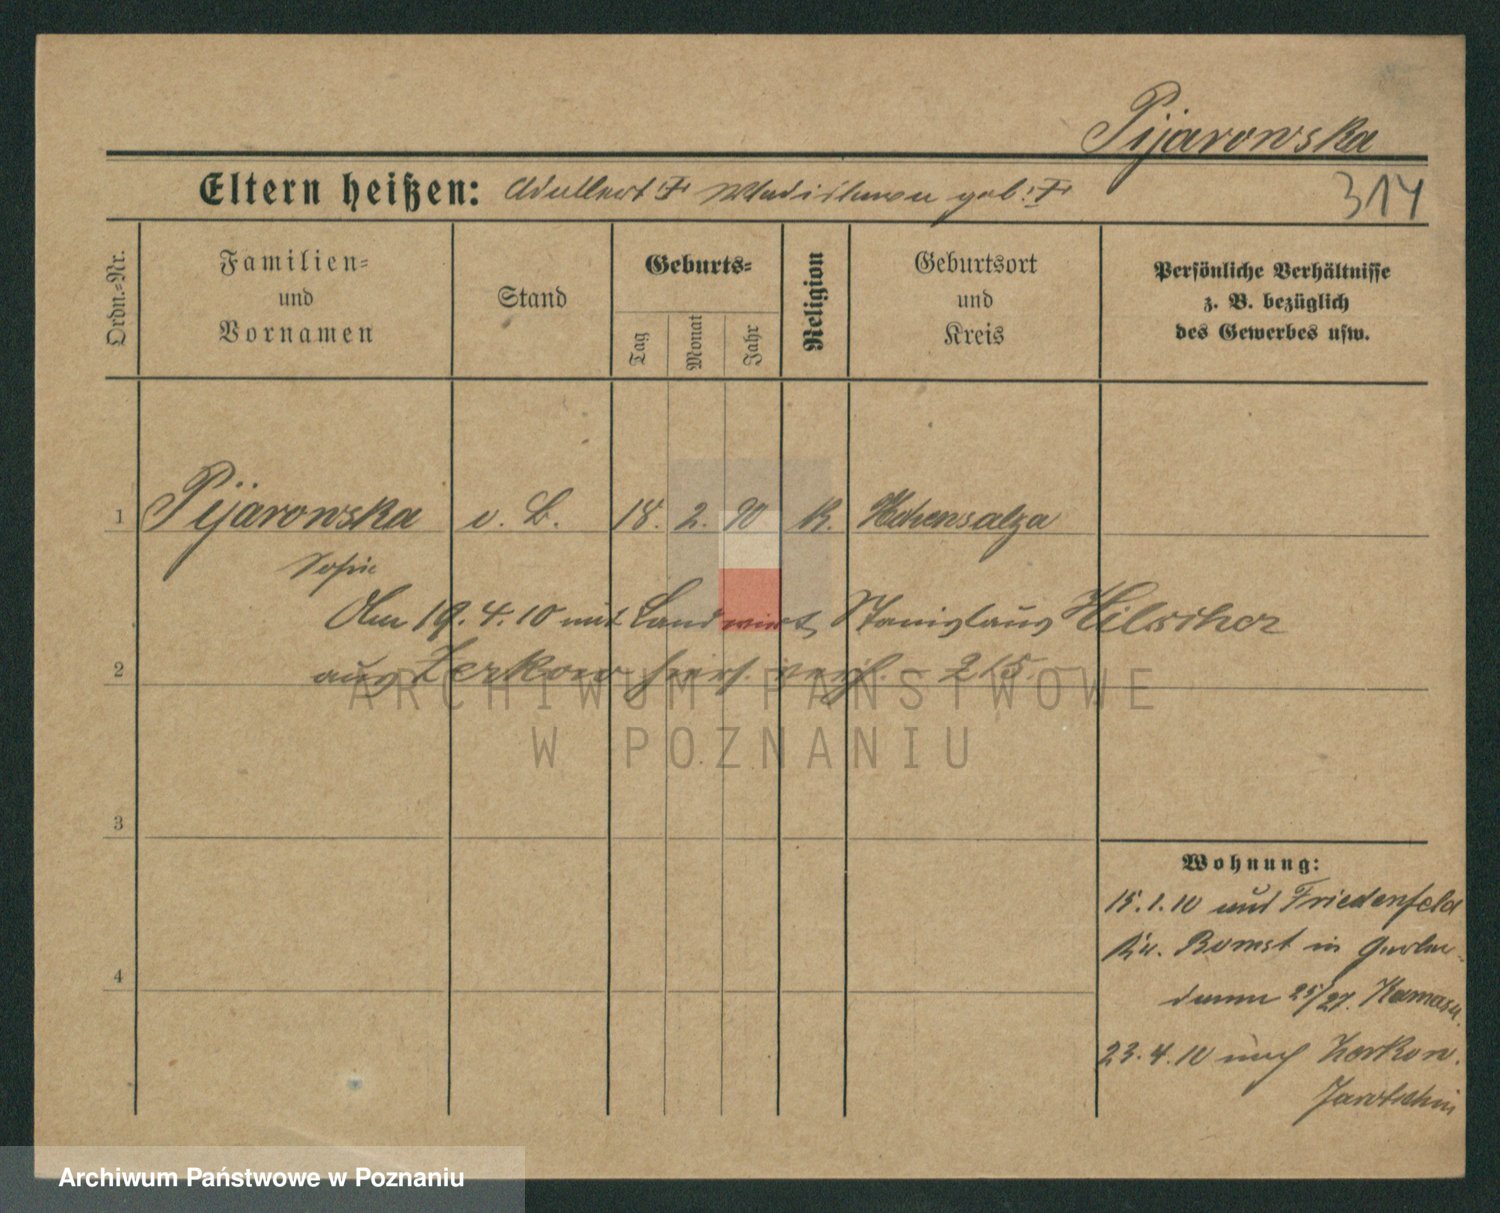 Pijarowska
Eltern heißen: Adalbert † Wladislawa geb. †
314
Ordn.=Nr.
Familien=
und
Vornamen
Stand
Geburts=
Tag
Monat
Jahr
Religion
Geburtsort
und
Kreis
Persönliche Verhältnisse
z. B. bezüglich
des Gewerbes usw.
1 Pijarowska o. B. 18. 2. 90 K. Hohensalza
Sofie
Am 19.4.10 mit Landwirt Stanislaus Hilscher
2 aus Zerkow 215.
3
Wohnung:
15.1.10 aus Friedenfeld
Kr. Bomst in
4
25/27.
23.4.10 nach Zerkow.
Jarotschin
ARCHIWUM PAŃSTWOWE
W POZNANIU
Archiwum Państwowe w Poznaniu